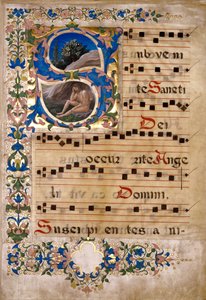 Sub veni
te Sancti
Dei
occur rite Ange
li Domini.
Suscipi entes a ni-